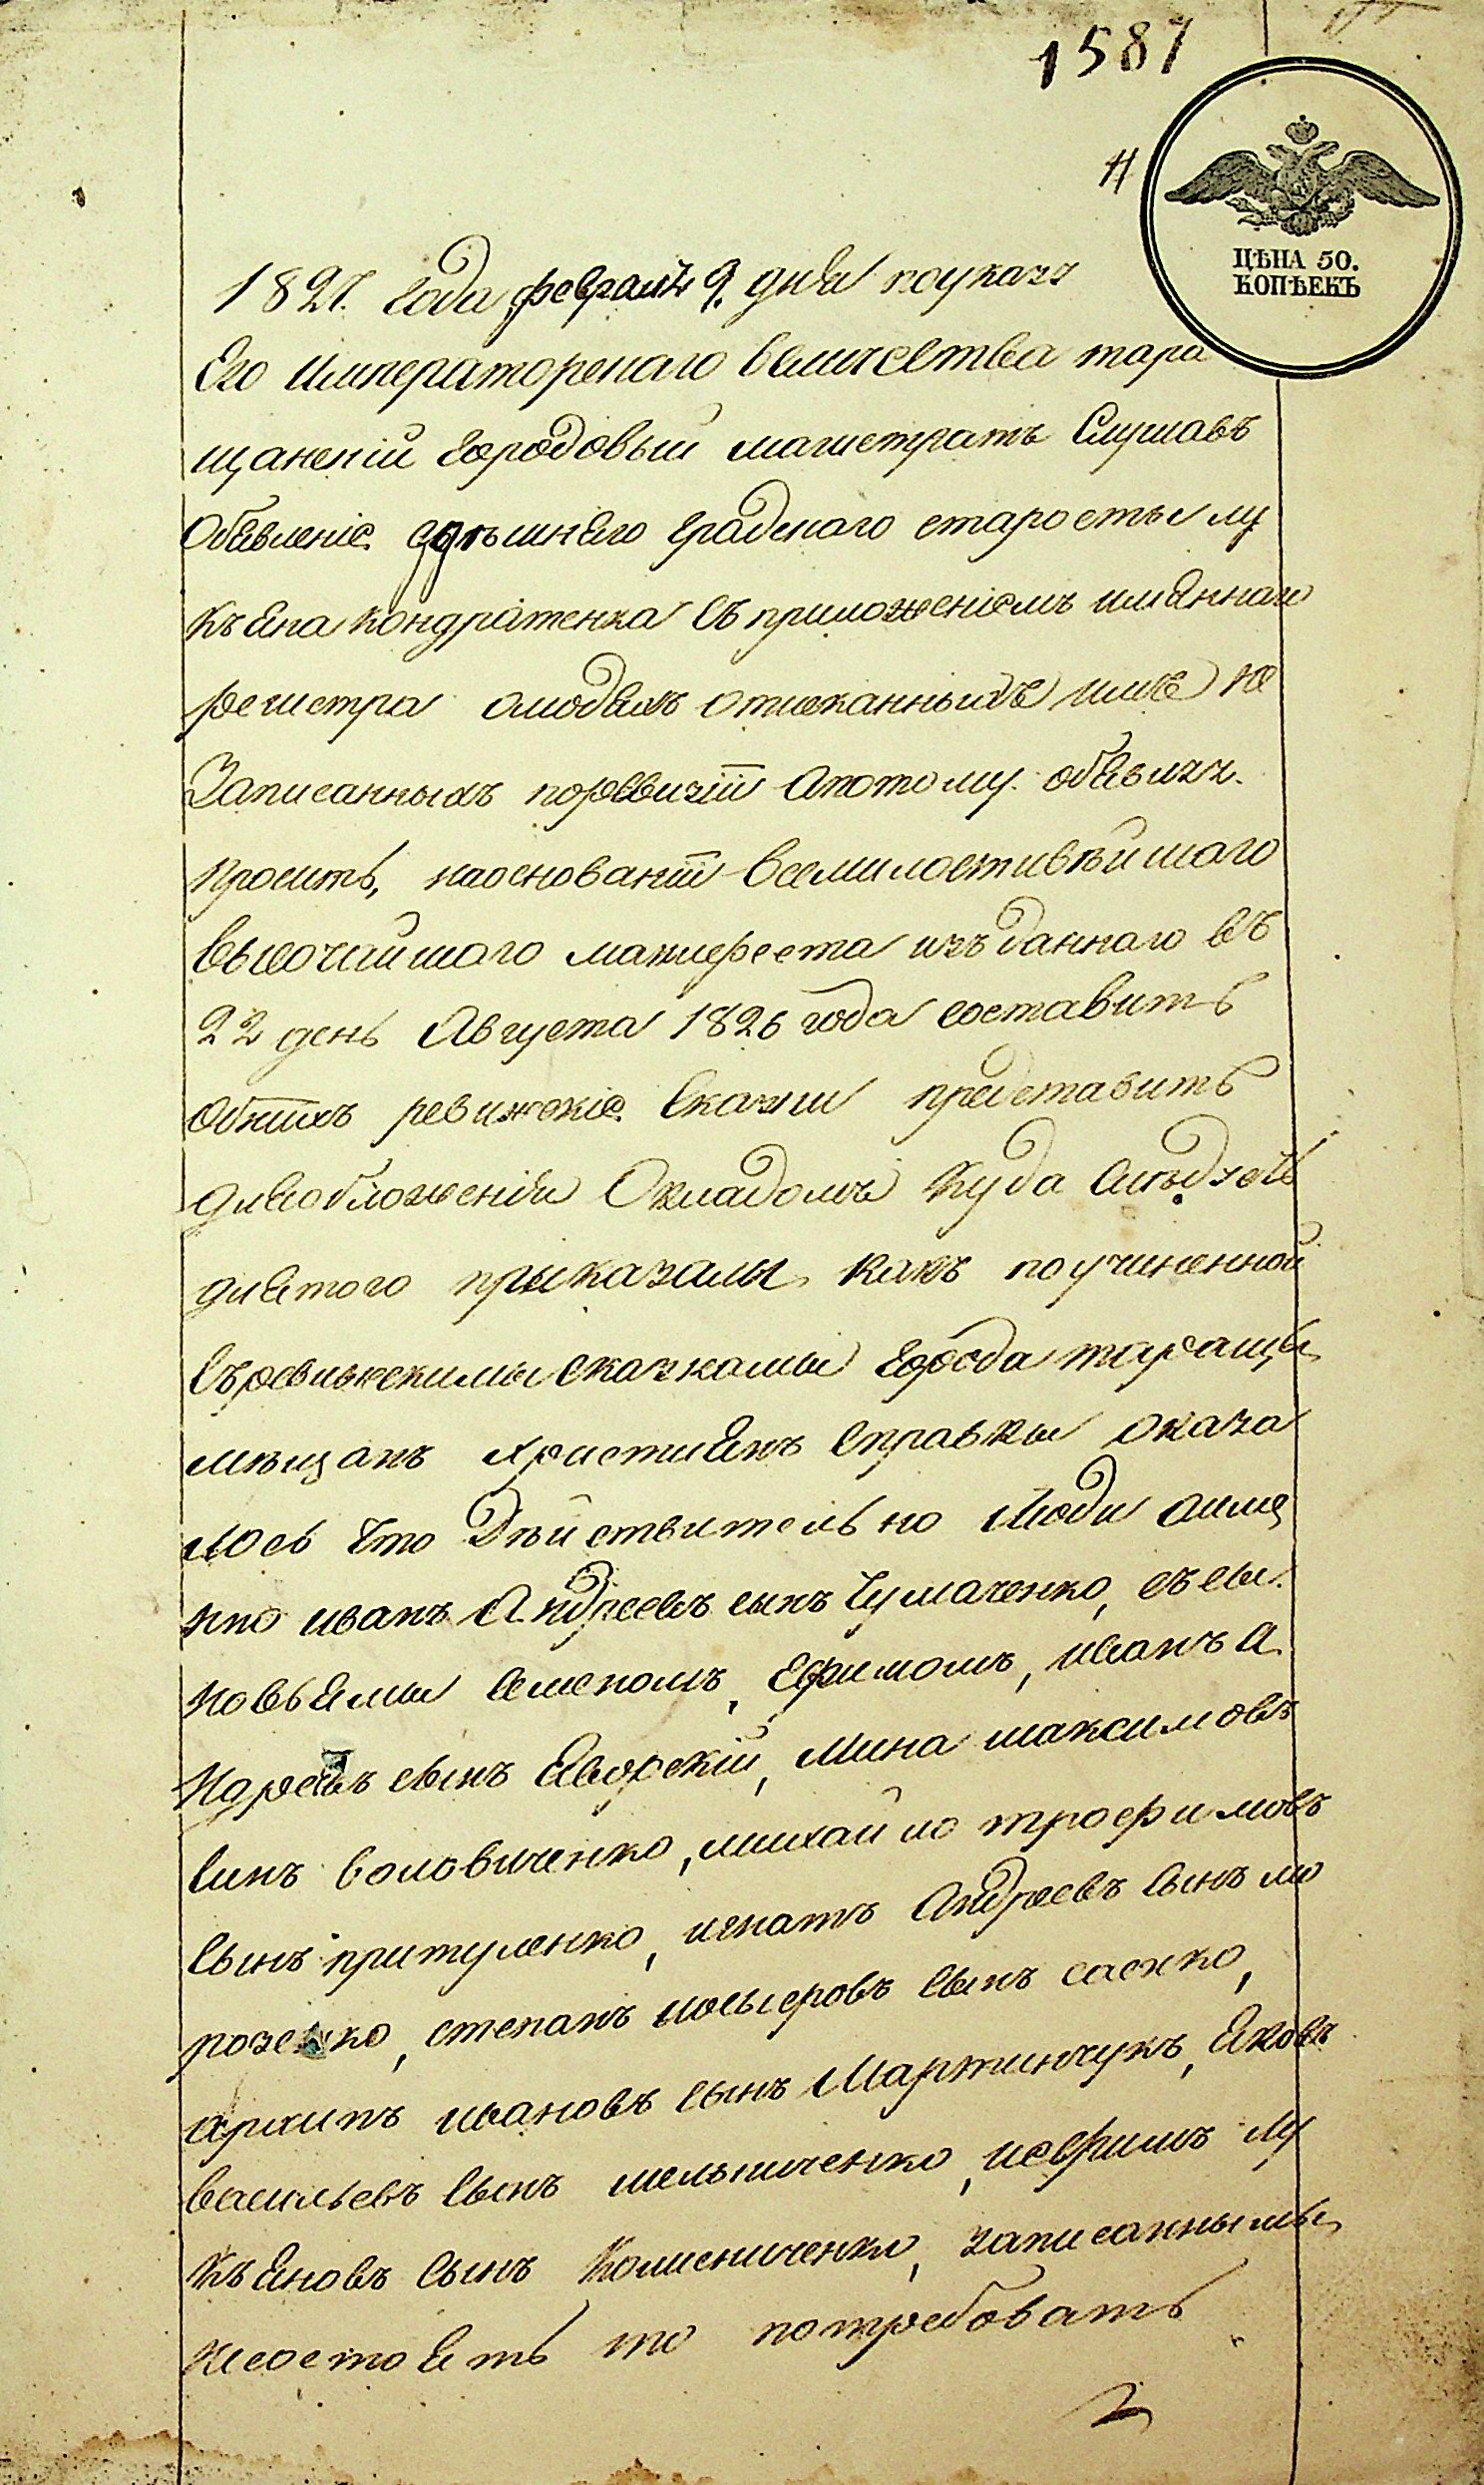 1587
11
ЦѢНА 50.
КОПѢЕКЪ
1827. года февраля 9. дня поуказу
Его Императорскаго величества тара
щанскій городовый магистратъ Слушавъ
Обявленіе здѣшняго градскаго старосты лу
кьяна кондратенка съ приложеніемъ имяннаго
регистра олюдяхъ отисканныхъ имъ не
Записанныхъ поревизіи апотому обявляя
просить, наоснованіи всемилостивѣйшаго
высочайшаго манифеста изъданнаго въ
22 день Августа 1826 года составить
обнихъ ревижскіе Сказки представить
дляобложенія Окладомъ Куда слѣдуетъ
длятого приказалы какъ поучиненной
Съревижскимы сказкамы города таращи
мѣщанъ християнъ Справкы оказа
лось что Дѣйствительно Люди аиме
нно иванъ Андреевъ сынъ Чумаченко, съсы
новьямы Семеномъ, Ефимомъ, иванъ а
ндреевъ сынъ Яворскій, Мина максимовъ
Синъ воловиченко, михайло трофимовъ
Сынъ притуленко, игнатъ Андреевъ Сынъ мо
розенко, степанъ иосыфовъ Сынъ саенко,
архипъ ивановъ Сынъ Мартинчукъ, Яковъ
васильевъ Сынъ мельниченко, иефимъ лу
кьяновъ Сынъ Колисниченко, записаннымы
несостоятъ то потребовать